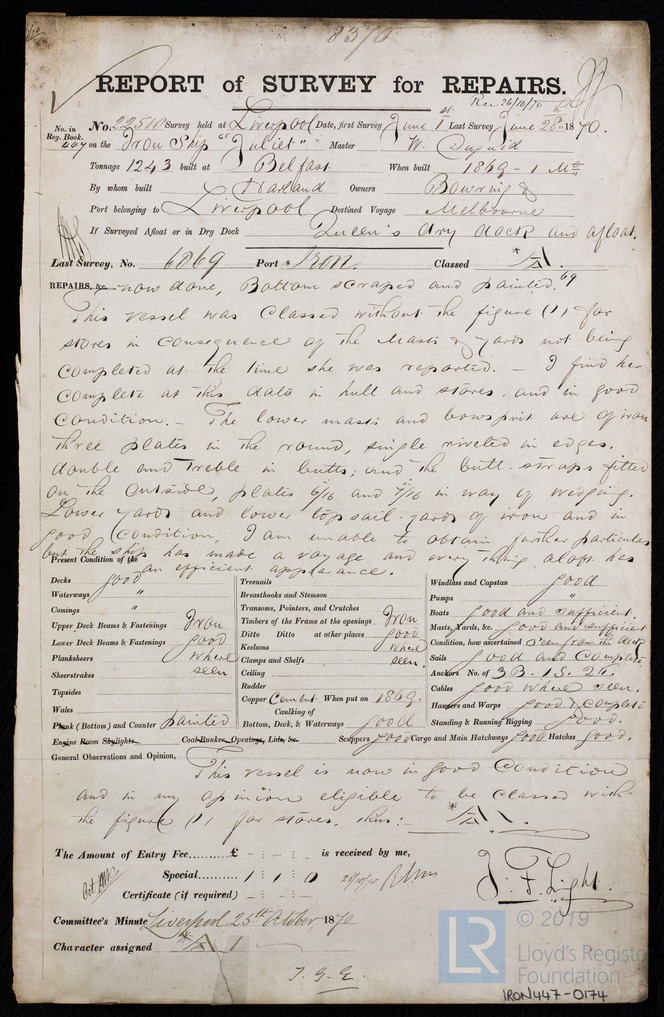 8370
REPORT of SURVEY for REPAIRS.
Rec. 26/10/70
No. in Reg. Book. No. 22510 Survey held at Liverpool Date, first Survey June 1st Last Survey June 28th 1870.
on the Iron Ship "Juliet" Master W. Duguid
Tonnage 1243 built at Belfast When built 1869 - 1 Mth
By whom built Harland Owners Bowring &
Port belonging to Liverpool Destined Voyage Melbourne
If Surveyed Afloat or in Dry Dock Queen's dry dock and afloat.
Last Survey, No. 6869 Port Iron. Classed *A
69
REPAIRS, &c. now done, Bottom scraped and painted.
This vessel was classed without the figure (1) for
stores in consequence of the Masts & yards not being
completed at the time she was reported. - I find her
complete at this date in hull and stores, and in good
condition. - The lower masts and bowsprit are of iron
three plates in the round, single riveted in edges,
double and treble in butts; and the butt-straps fitted
on the outside, plates 6/16 and 7/16 in way of wedging.
Lower yards and lower topsail-yards of iron and in
good condition, I am unable to obtain further particulars
but the ship has made a voyage and every thing aloft has
an efficient appearance.
Present Condition of the
Decks good
Waterways "
Comings "
Upper Deck Beams & Fastenings Iron
Lower Deck Beams & Fastenings good
Planksheers where
Sheerstrakes seen
Topsides
Wales
Plank (Bottom) and Counter painted
Engine Room Skylights Coal Bunker Openings, Lids, &c.
Treenails
Breasthooks and Stemson
Transoms, Pointers, and Crutches
Timbers of the Frame at the openings Iron
Ditto Ditto at other places good
Keelsons where
Clamps and Shelfs seen.
Ceiling
Rudder
Copper Cement When put on 1869.
Caulking of
Bottom, Deck, & Waterways good
Scuppers good Cargo and Main Hatchways good Hatches good.
Windlass and Capstan good
Pumps "
Boats good and sufficient
Masts, Yards, &c. good and sufficient
Condition, how ascertained Seen from the deck
Sails good and Complete
Anchors No. of 3 B. 1 S. 2 K.
Cables good where seen.
Hawsers and Warps good & complete
Standing & Running Rigging good.
General Observations and Opinion,
This vessel is now in good condition
and in my opinion eligible to be classed with
the figure (1) for stores, thus:- *A1.
The Amount of Entry Fee.........£ - : - : - is received by me,
Special......... 1 : 1 : 0
Certificate (if required) - : - : -
J. F. Light.
Committee's Minute Liverpool 25th October, 1870
Character assigned *A 1
T.G.E.
LR
© 2019
Lloyd's Register
Foundation
IRON447-0174